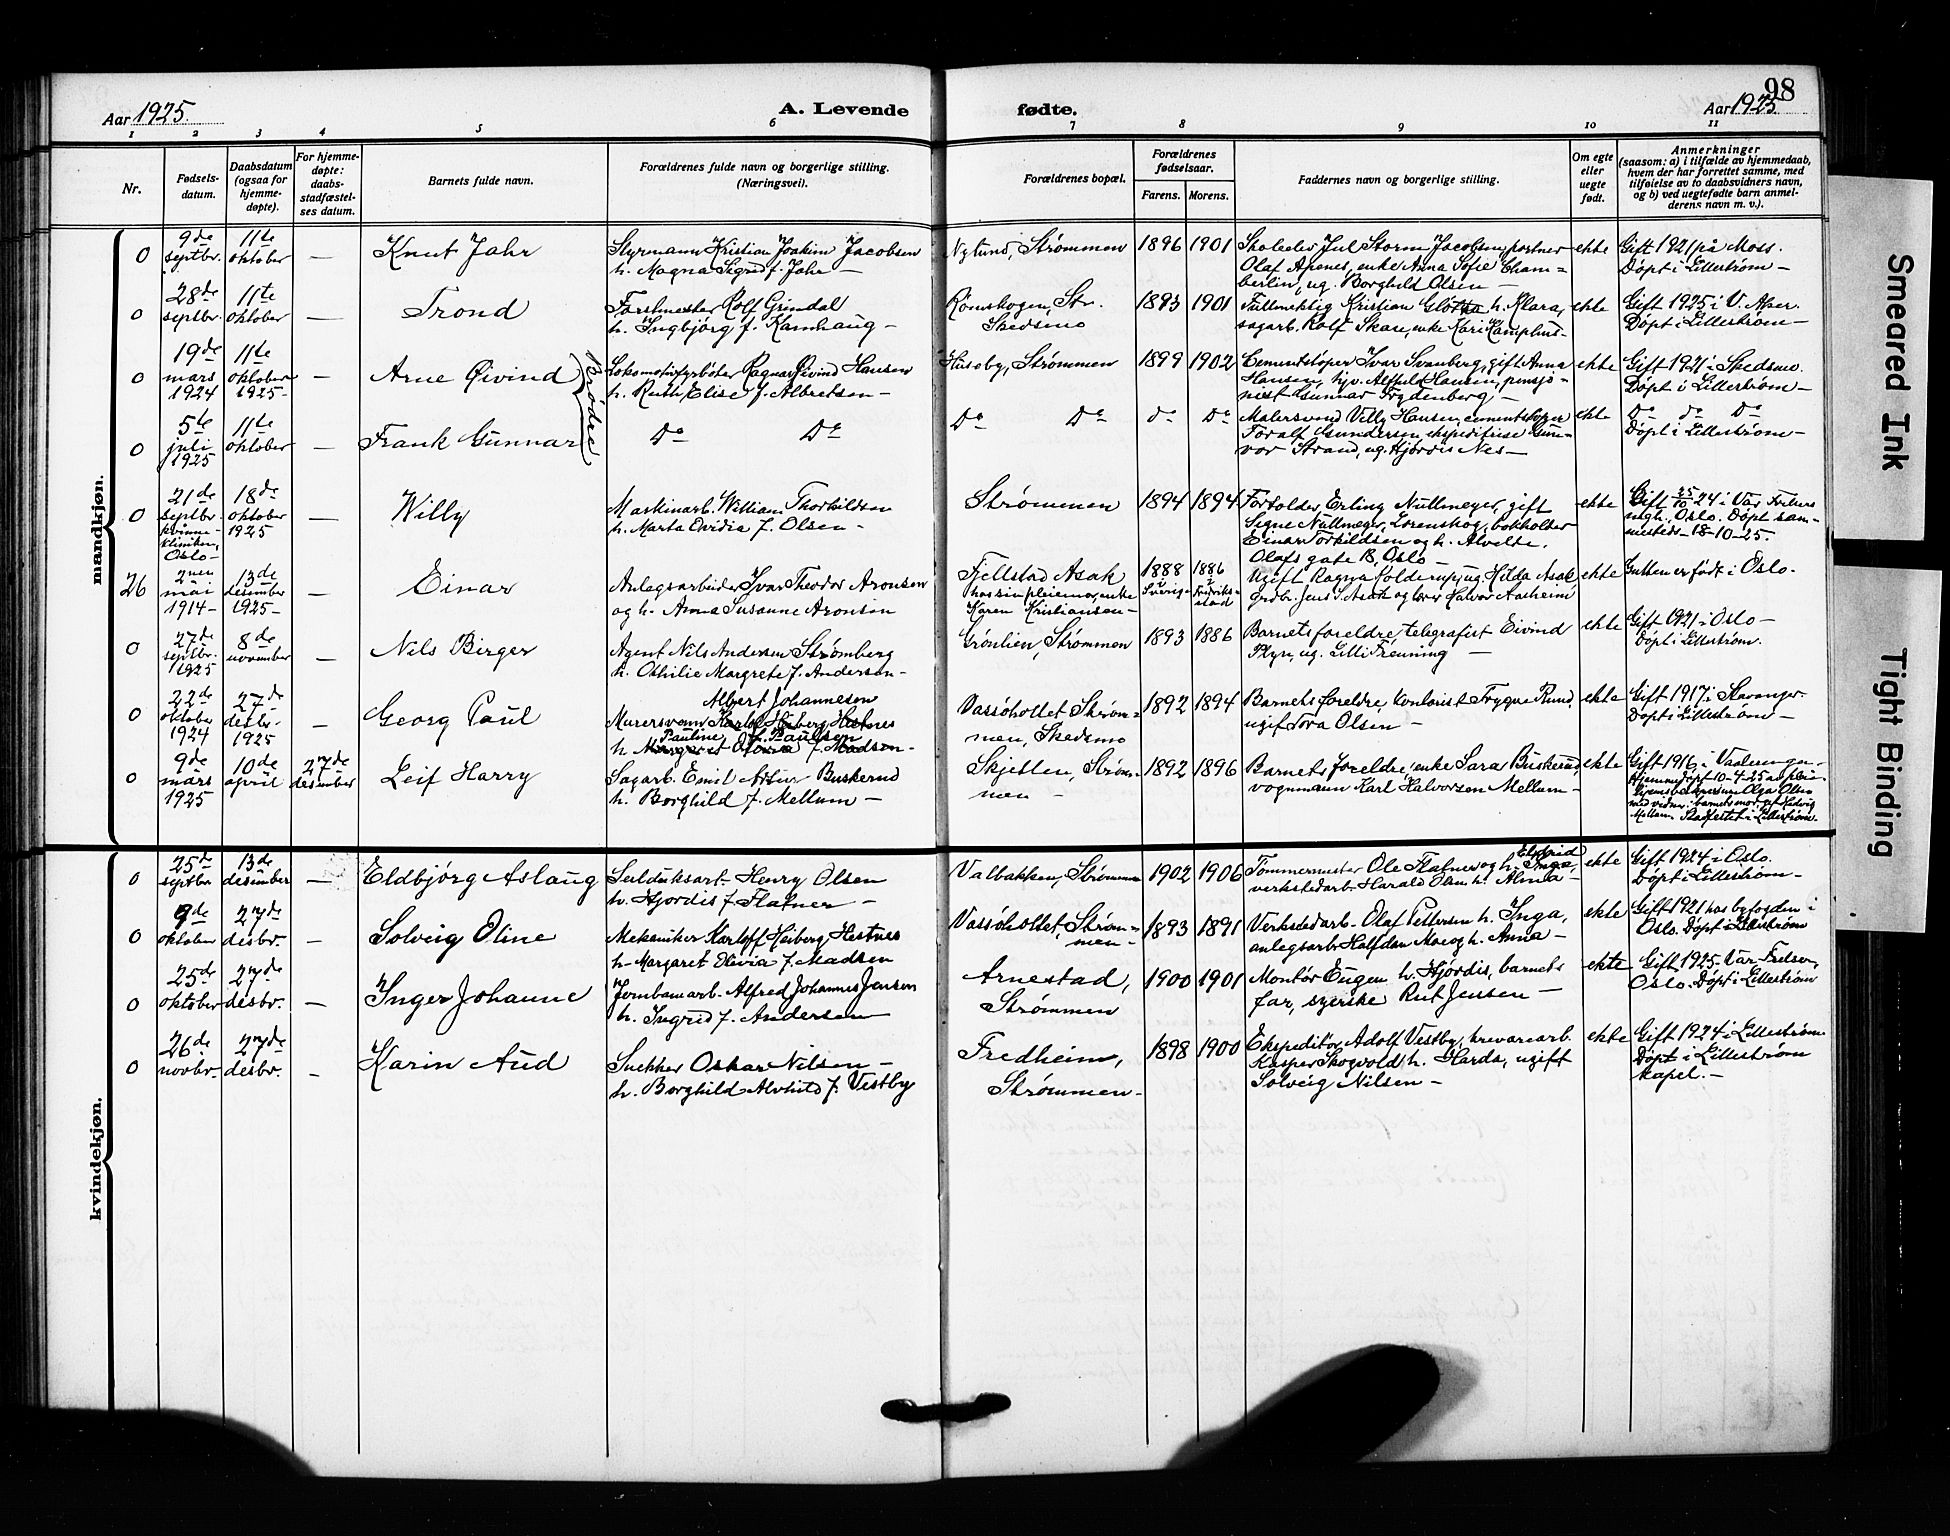 98
Aar 1925.
A. Levende
fødte.
Aar 1925.
1 2 3 4 5 6 7 8 9 10 11
Nr.
Fødsels-
datum.
Daabsdatum
(ogsaa for
hjemme-
døpte).
For hjemme-
døpte:
daabs-
stadfæstel-
ses datum.
Barnets fulde navn.
Forældrenes fulde navn og borgerlige stilling.
(Næringsvei).
Forældrenes bopæl.
Forældrenes
fødselsaar.
Farens. Morens.
Faddernes navn og borgerlige stilling.
Om egte
eller
uegte
født.
Anmerkninger
(saasom: a) i tilfælde av hjemmedaab,
hvem der har forrettet samme, med
tilføielse av to daabsvidners navn,
og b) ved uegtefødte barn anmel-
derens navn m. v.).
mandkjøn.
0 9de septbr. 11te oktober — Knut Jahr
Styrmann Kristian Joakim Jacobsen
h. Magna Sigrid f. Jahr —
Nylund, Strømmen 1896 1901
Skoleelev Jul Storm Jacobsen, portner
Olaf Apenes, enke Anna Sofie Cham=
berlin, ug. Borghild Olsen —
ekte
Gift 1921 på Moss.
Døpt i Lillestrøm —
0 28de septbr. 11te oktober — Trond
Forstmester Rolf Grimdal
h. Ingbjørg f. Kamhaug —
Rømskogen, Str.
Skedsmo
1893 1901
Fullmektig Kristian h. Klara,
sagarb. Rolf Skare, enke Kari Kamphus.
ekte
Gift 1925 i V. Aker.
Døpt i Lillestrøm —
0 19de mars 1924 11te oktober 1925 — Arne Øivind
Brødre
Lokomotivfyrbøter Ragnar Øivind Hansen
h. Ruth Elise f. Albretsen —
Huseby, Strømmen 1899 1902
Cementstøper Ivar Svanberg, gift Anna
Hansen, hjv. Alfhild Hansen, pensjo=
nist Gunnar Frydenberg —
ekte
Gift 1921 i Skedsmo.
Døpt i Lillestrøm —
0 5te juli 1925 11te oktober — Frank Gunnar
Do Do
Do Do do Do
Malersvend Villy Hansen, cementstøper
Toralf Gundersen, ekspeditrise Gun=
vor Strand, ug. Hjørdis Nes —
ekte
Do do Do
Døpt i Lillestrøm —
0 21de septbr. kvinne-
kliniken,
Oslo —
18de oktober 1925 — Willy
Maskinarb. William Thorkildsen
h. Marta Enidia f. Olsen —
Strømmen 1894 1894
Forvolder Erling Nullmeyer, gift
Signe Nullmeyer, Lørenskog, bokholder
Einar Torkildsen og h. Alvelte,
Olafs gate 18, Oslo —
ekte
Gift 25/10 24 i Vår Frelsers
mgh., Oslo. Døpt sam=
mesteds 18-10-25.
26 2nen mai 1914 — 13de desember 1925 — Einar
Anlegsarbeider Ivar Theodor Aronsen
og h. Anna Susanne Aronsen
Fjellstad Asak
hos sin pleiemor, enke
Karen Kristiansen —
1888 i Sverige 1886 i Fredriks-
stad
Ugift Ragna Volderup, ug. Hilda Asak
grdbr. Jens S. Asak og Halvor Aasheim
ekte
Gutten er født i Oslo.
0 27de septbr. 1925 8de november — Nils Birger
Agent Nils Andersen Strømberg
h. Othilie Margrete f. Andersen —
Grønlien, Strømmen 1893 1886
Barnets foreldre, telegrafist Eivind
Plyn, ug. Lilli Freuning —
ekte
Gift 1921 i Oslo —
Døpt i Lillestrøm.
0 22de oktober 1924 27de desbr. 1925 — Georg Paul
Albert Johannesen
Murersvenn Karloff Heiberg Hestnes
Pauline f. Paulsen
h. Margaret Olivia f. Madsen —
Vassøholtet Strøm=
men, Skedsmo
1892 1894
Barnets foreldre, kontorist Trygve Rund,
ugift Tora Olsen —
ekte
Gift 1917 i Stavanger.
Døpt i Lillestrøm —
0 9de mars 1925 10de april 27de desember Leif Harry
Sagarb. Emil Artur Buskerud
h. Borghild f. Mellum —
Skjetten, Strøm=
men —
1892 1896
Barnets foreldre, enke Sara Buskerud,
vognmann Karl Halvorsen Mellum —
ekte
Gift 1916 i Vaalerengen
Hjemmedøpt 10-4-25 av
Olga Olsen
med vidner: barnets mor, gf. Hedvig
Mellum. Stadfestet i Lillestrøm.
kvindekjøn.
0 25de septbr. 13de desember — Eldbjørg Aslaug
Seilduksarb. Henry Olsen
h. Hjørdis f. Flatner —
Valbakken, Strømmen 1902 1906
Tømmermester Ole Flatner og h. Inga,
verkstedarb. Harald Olsen h. Alma —
ekte
Gift 1924 i Oslo.
Døpt i Lillestrøm —
0 9de oktober 27de desbr. — Solveig Oline
Mekaniker Karloff Heiberg Hestnes
h. Margaret Olivia f. Madsen
Vassøholtet, Strøm=
men —
1893 1891
Verkstedarb. Olaf Pettersen h. Inga,
anlegsarb. Halfdan Moe og h. Anna —
ekte
Gift 1921 hos byfogden i
Oslo. Døpt i Lillestrøm
0 25de oktober 27de desbr. — Inger Johanne
Jernbanearb. Alfred Johannes Jensen
h. Ingrid f. Andersen —
Arnestad,
Strømmen
1900 1901
Montør Eugen h. Hjørdis, barnets
far, syerske Rut Jensen —
ekte
Gift 1925 Vår Frelser,
Oslo. Døpt i Lillestrøm
0 26de novbr. 27de desbr. — Karin Aud
Snekker Oskar Nilsen —
h. Borghild Alvhild f. Vestby
Fredheim,
Strømmen —
1898 1900
Ekspeditør Adolf Vestby, brevarearb.
Kasper Skogvold h. Harda, ugift
Solveig Nilsen —
ekte
Gift 1924 i Lillestrøm
Døpt i Lillestrøm
kapel. —
Smeared Ink
Tight Binding